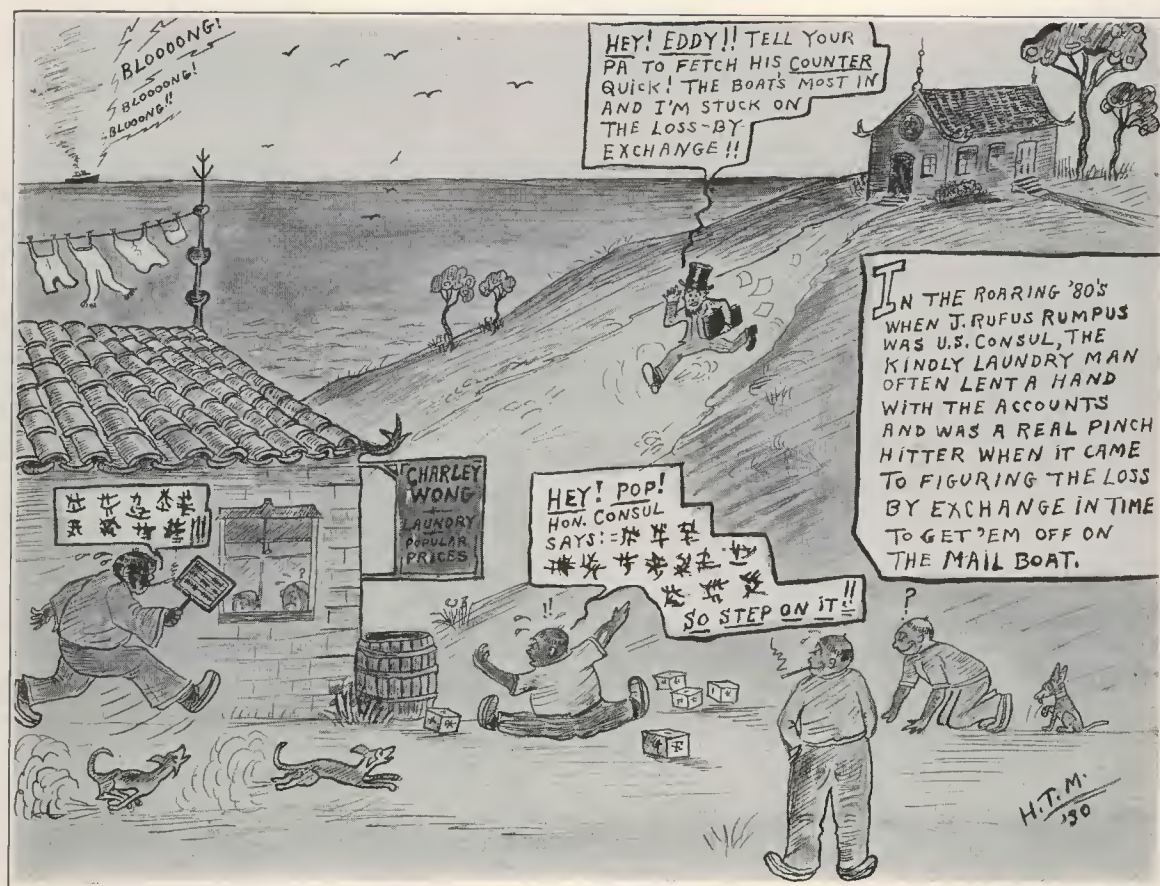 BLOOOONG!
BLOOOONG!
BLOOONG!!
HEY! EDDY!! TELL YOUR
PA TO FETCH HIS COUNTER
QUICK! THE BOAT'S MOST IN
AND I'M STUCK ON
THE LOSS-BY-
EXCHANGE!!
IN THE ROARING '80'S
WHEN J. RUFUS RUMPUS
WAS U.S. CONSUL, THE
KINDLY LAUNDRY MAN
OFTEN LENT A HAND
WITH THE ACCOUNTS
AND WAS A REAL PINCH
HITTER WHEN IT CAME
TO FIGURING THE LOSS
BY EXCHANGE IN TIME
TO GET 'EM OFF ON
THE MAIL BOAT.
CHARLEY
WONG
LAUNDRY
POPULAR
PRICES
HEY! POP!
HON. CONSUL
SAYS:=
SO STEP ON IT!!
!!
?
H.T.M.
'30